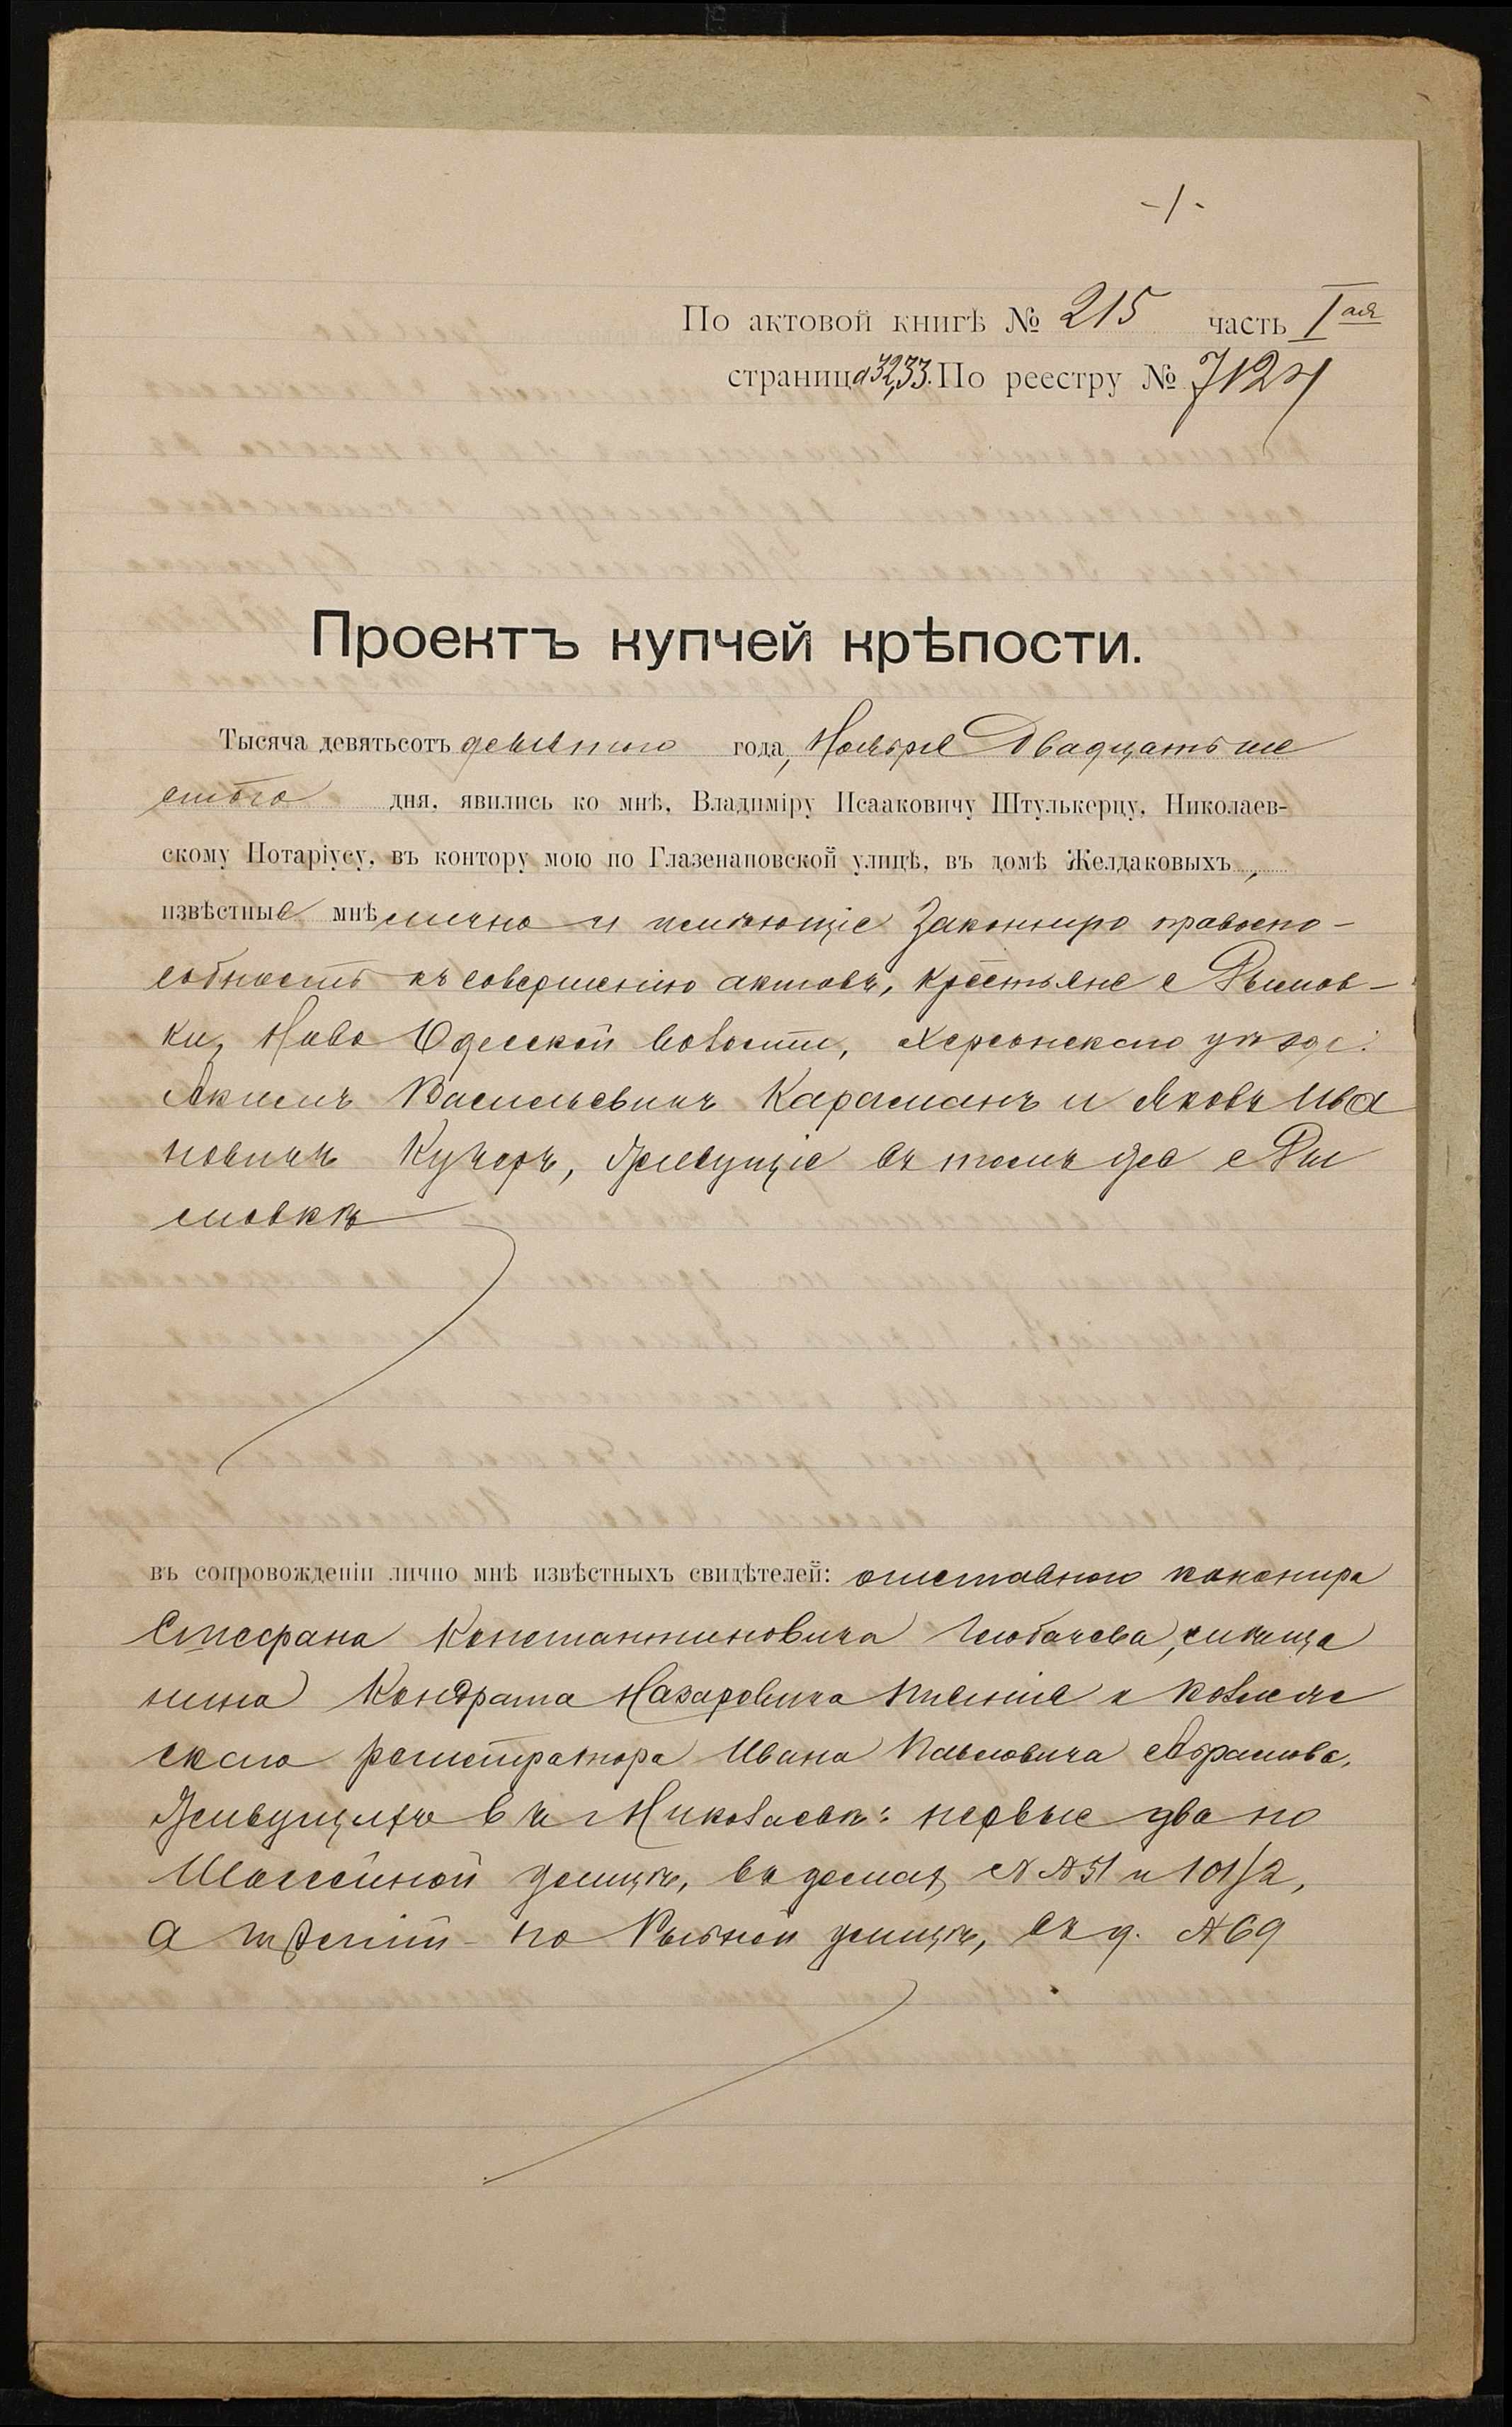 -1-
По актовой книгѣ № 215 часть Iая
страница 32,33. По реестру № 7124
Проектъ купчей крѣпости.
Тысяча девятьсотъ девятаго года, Ноября Двадцать ше
стого дня, явились ко мнѣ, Владиміру Исааковичу Штулькерцу, Николаев-
скому Нотаріусу, въ контору мою по Глазенаповской улицѣ, въ домѣ Желдаковыхъ,
извѣстные мнѣ лично и имѣющіе законную правоспо-
собность къ совершенію актовъ, крестьяне с.
ки, Ново Одесской волости, Херсонскаго уѣзда:
Акимъ Васильевичъ Караманъ и Яковъ Ива
новичъ Кучеръ, живущіе въ томъ же с.
мовкѣ
въ сопровожденіи лично мнѣ извѣстныхъ свидѣтелей: отставного канонира
Стефана Константиновича мѣща
нина Кондрата Назаровича и коллеж
скаго регистратора Ивана Павловича Абрамова,
живущихъ въ г. Николаевѣ: первые два по
Шоссейной улицѣ, въ домахъ №№ 51 и 101/2,
а третій - по Рыбной улицѣ, въ д. № 69